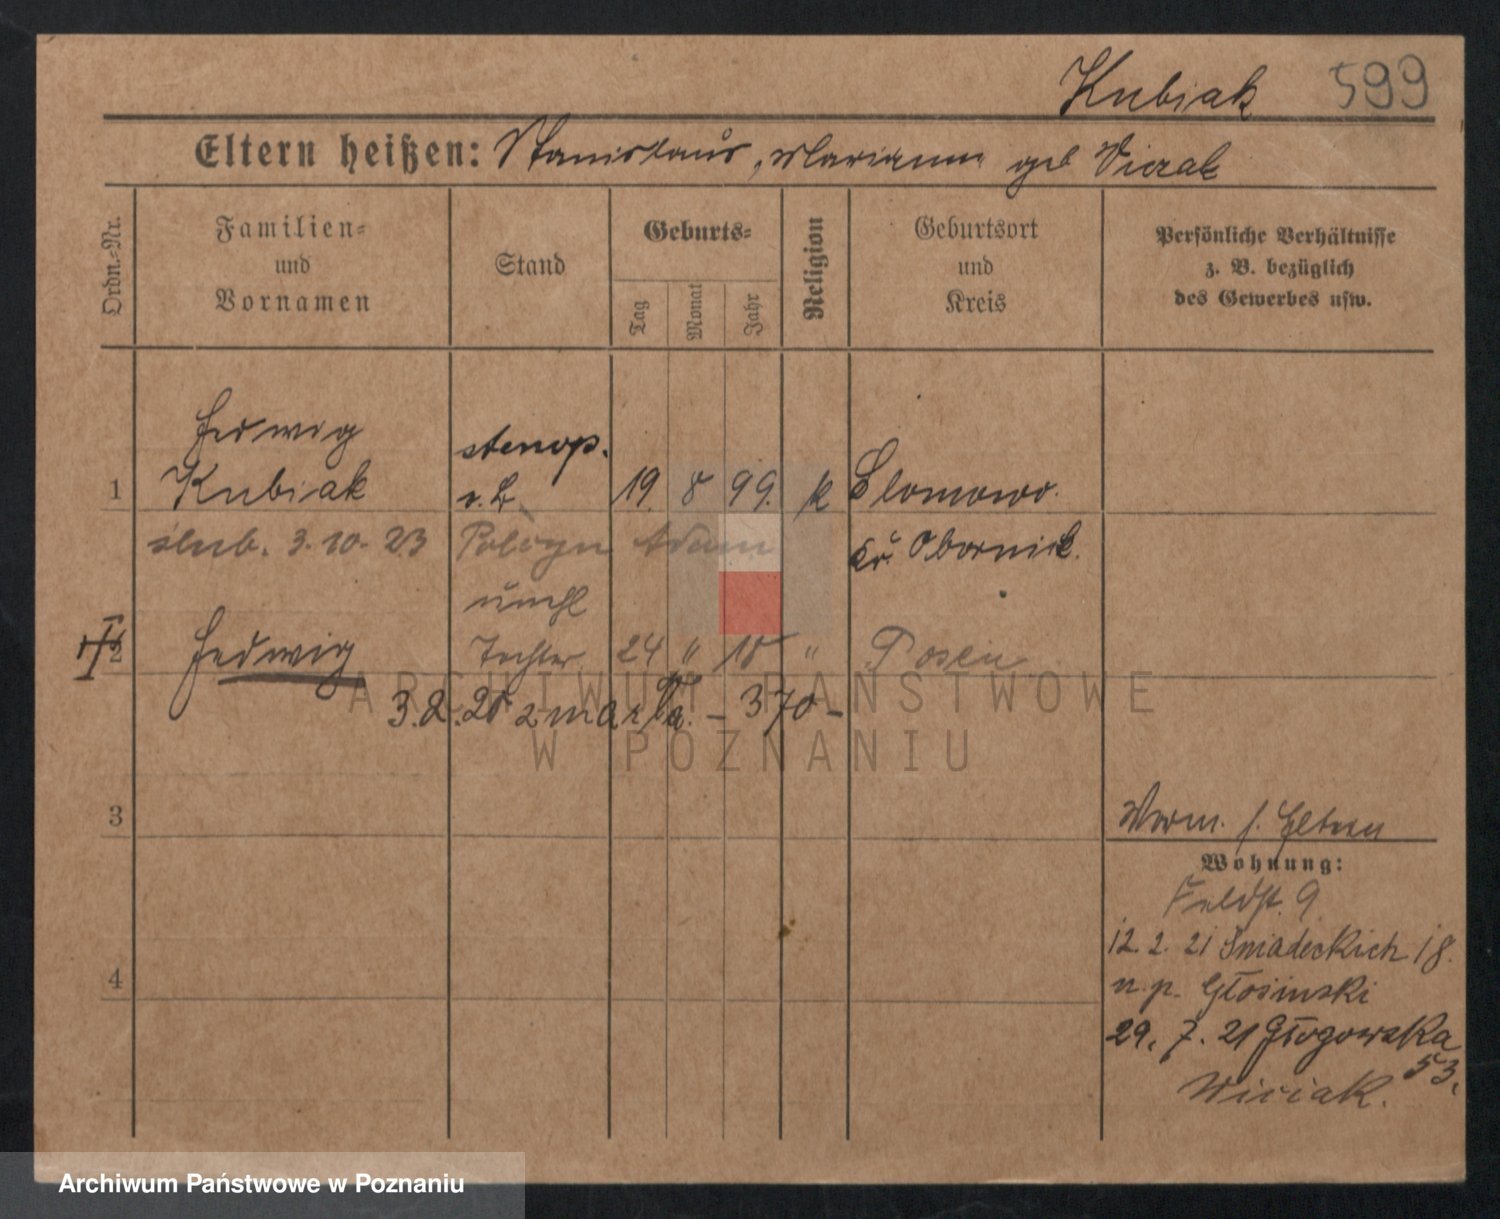 Kubiak 599
Eltern heißen: Stanislaus, Marianna geb Wiczak
Ordn.-Nr.
Familien-
und
Vornamen
Stand
Geburts-
Tag
Monat
Jahr
Religion
Geburtsort
und
Kreis
Persönliche Verhältnisse
z. B. bezüglich
des Gewerbes usw.
Hedwig stenop.
1 Kubiak 19. 8 99. k Slomowo.
ślub. 3. 10. 23 Adam Kr. Obornik.
unehl
2 Hedwig Tochter 24 " 18 " Posen
3.2.20 zmarła. – 370 –
3
Worm. s. Eltern
Wohnung:
Feldst. 9
12. 2. 21 Śniadeckich 18.
4
u. p. Głosinski
29. 7. 21 Głogowska
53.
Wiciak.
ARCHIWUM PAŃSTWOWE
W POZNANIU
Archiwum Państwowe w Poznaniu